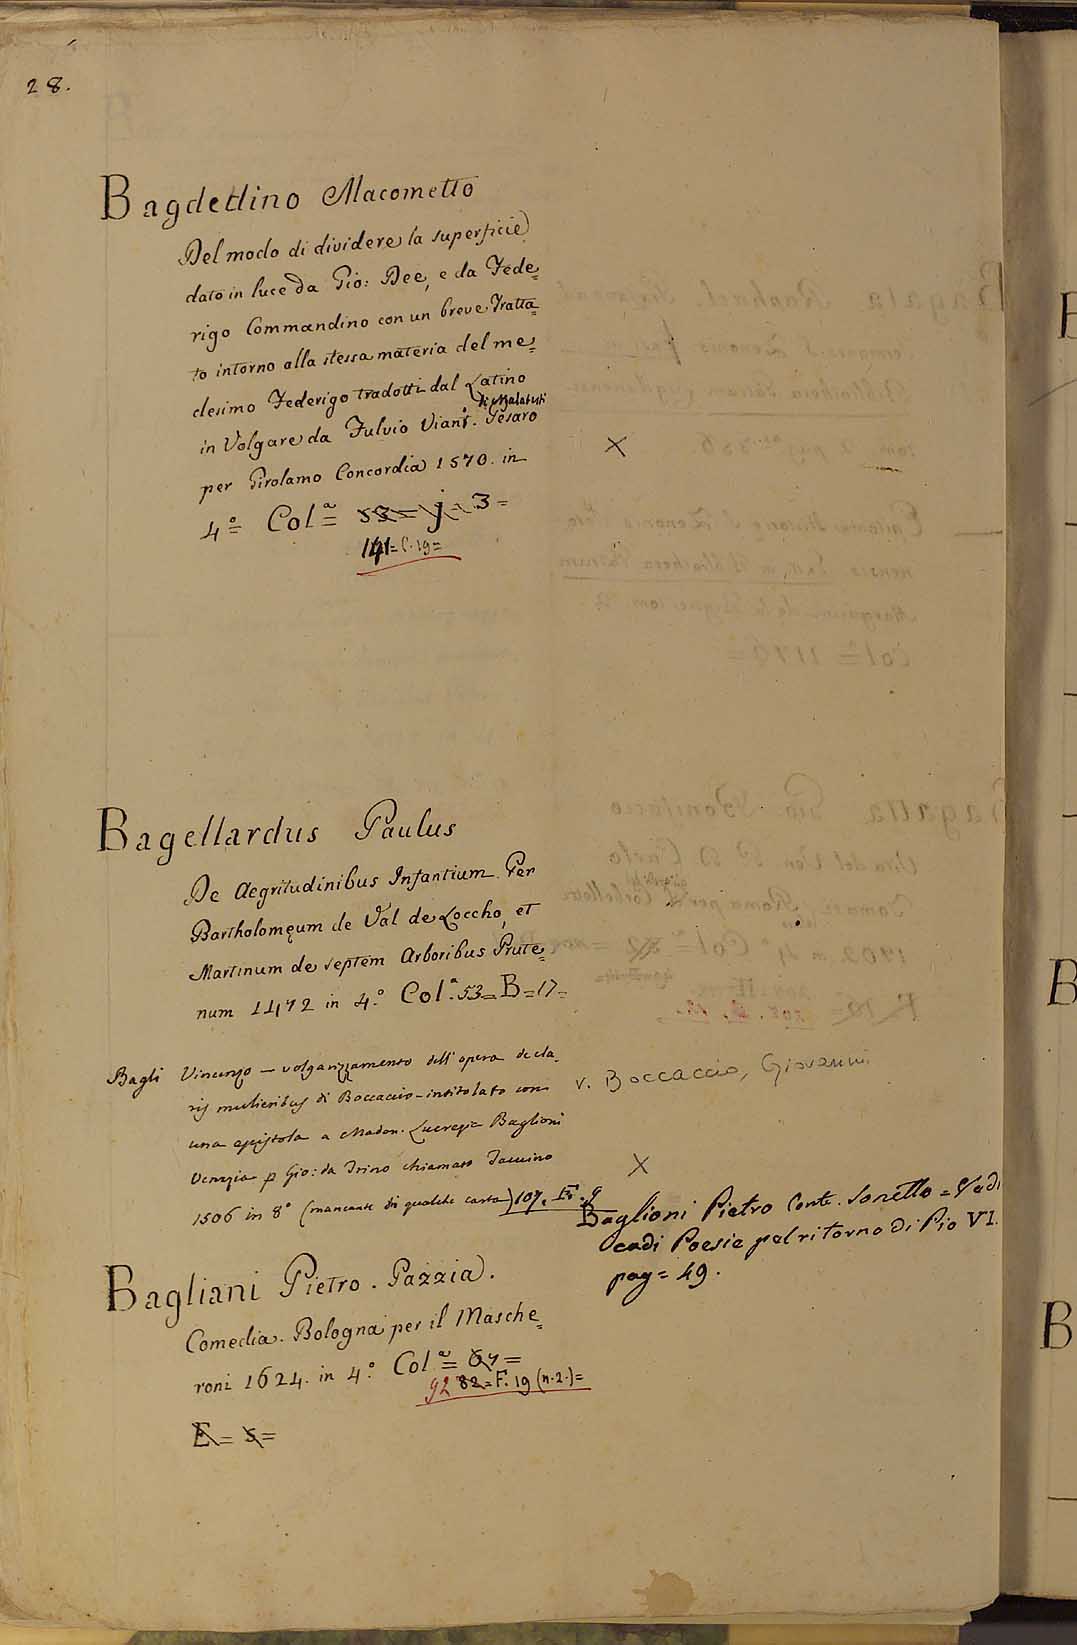 28.
Bagdedino Macometto
Del modo di dividere la superficie
dato in luce da Gio: Dee, e da Fede=
rigo Commandino con un breve Tratta=
to intorno alla stessa materia del me=
desimo Federigo tradotti dal Latino
de Malatesti
in Volgare da Fulvio Viani. Pesaro
per Girolamo Concordia 1570. in
4º= Colª= 58= j= 3=
141= C. 19=
X
Bagellardus Paulus
De Aegritudinibus Infantium. Per
Bartholomęum de Val de Zoccho, et
Martinum de septem Arboribus Prute=
num 1472 in 4.º Colª. 53= B=17=
Bagli Vincenzo — volgarizzamento dell'opera de cla_
ris mulieribus di Boccaccio - intitolato con
una epistola a Madon. Lucrezia Baglioni
Venezia p Gio: da Trino chiamato Tacuino
1506 in 8º (mancante di qualche carta) 107. F. 9
v. Boccaccio, Giovanni
X
Baglioni Pietro Conte. Sonetto = Vedi
Poesie pel ritorno di Pio VI.
pag = 49.
Bagliani Pietro. Pazzia.
Comedia. Bologna per il Masche=
roni 1624. in 4º. Colª= 67=
92 82= F. 19 (n. 2.)=
E= 5=